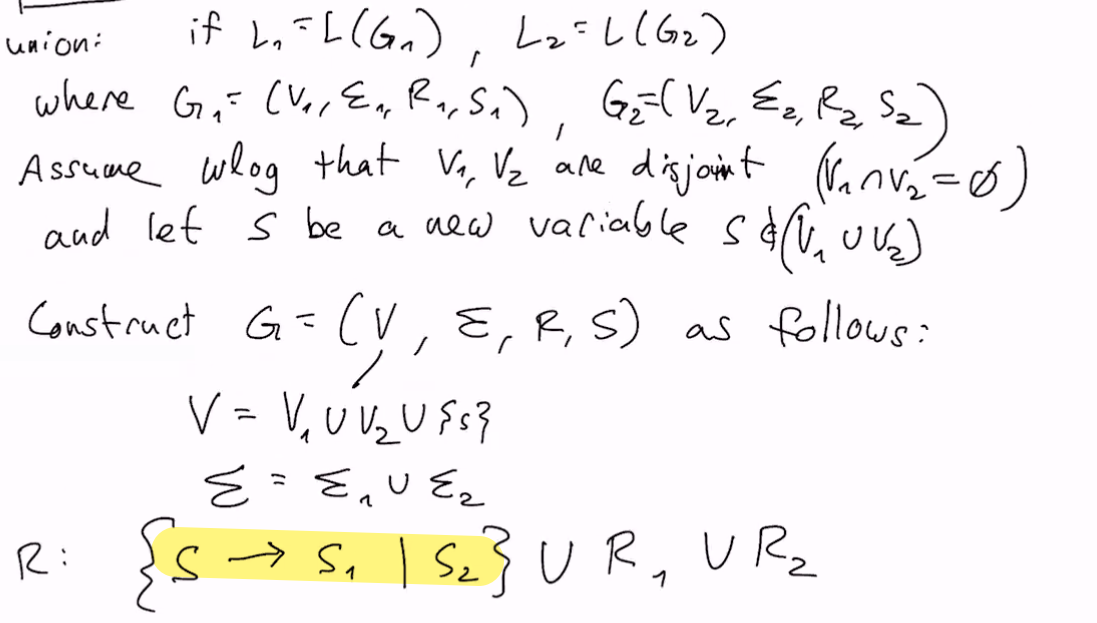 union: if L₁ = L(G₁), L₂ = L(G₂)
where G₁ = (V₁, Σ₁, R₁, S₁), G₂ = (V₂, Σ₂, R₂, S₂)
Assume wlog that V₁, V₂ are disjoint (V₁ ∩ V₂ = ∅)
and let S be a new variable S ∉ (V₁ ∪ V₂)
Construct G = (V, Σ, R, S) as follows:
V = V₁ ∪ V₂ ∪ {S}
Σ = Σ₁ ∪ Σ₂
R: {S → S₁ | S₂} ∪ R₁ ∪ R₂